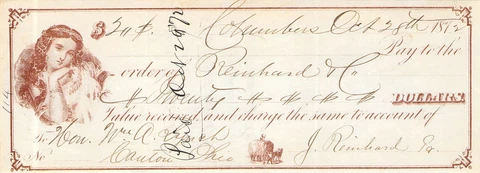 $20#. Columbus Oct 28th 1872
Pay to the
order of Reinhard & Co
# Twenty # # # # DOLLARS
Value received and charge the same to account of
To Hon. Wm A. Lynch
No Canton Ohio J. Reinhard Ex.
Paid Oct 29 72